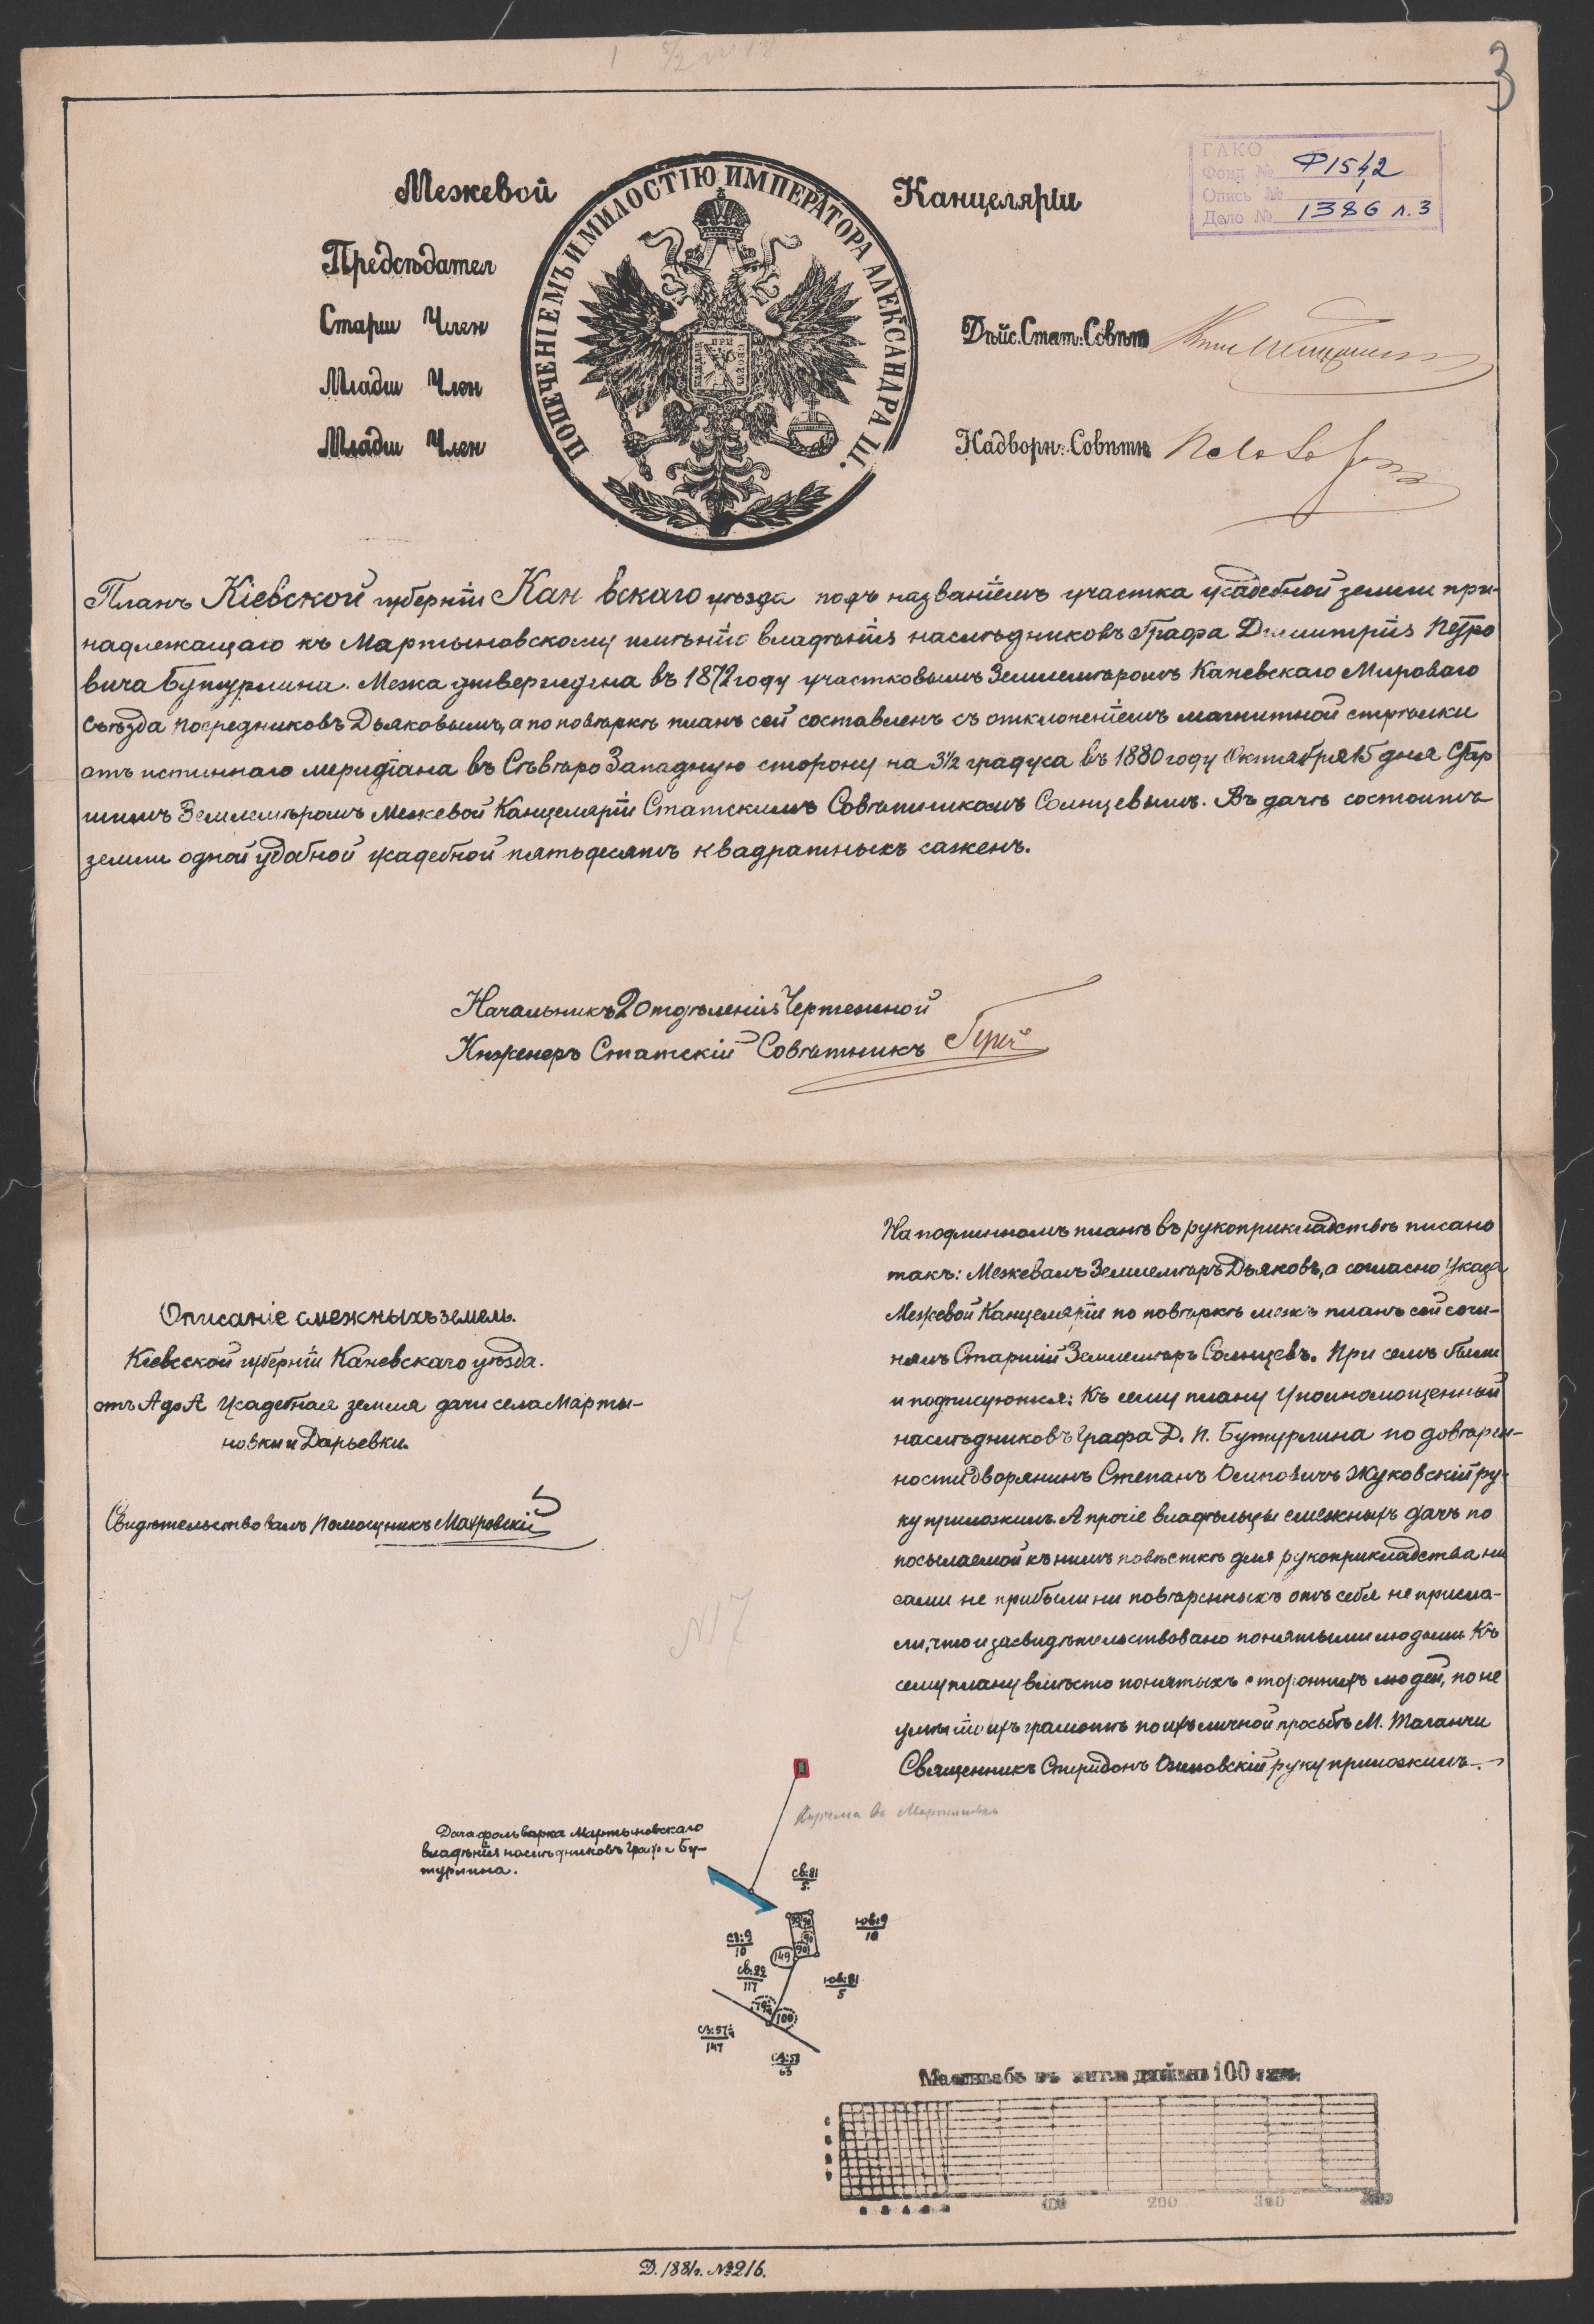 3
ГАКО
Фонд № Ф 1542
Опись № 1
Дело № 1386 л. 3
Межевой Канцеляріи
ПОПЕЧЕНІЕМЪ И МИЛОСТІЮ ИМПЕРАТОРА АЛЕКСАНДРА III.
Предсѣдател
Старш Член
Младш Член
Младш Член
Дѣйс. Стат: Совѣтн
Надворн: Совѣтн
Планъ Кіевской губерніи Кан вскаго уѣзда подъ названіемъ участка усадебной земли при-
надлежащаго къ Мартыновскому имѣнію владѣнія наслѣдниковъ Графа Димитрія Петро
вича Бутурлина. Межа утверждена въ 1872 году участковымъ Землемѣромъ Каневскаго Мироваго
Съѣзда Посредниковъ Дьяковымъ, а по повѣркѣ планъ сей составленъ съ отклоненіемъ магнитной стрѣлки
отъ истиннаго меридіана въ Сѣверо Западную сторону на 3½ градуса въ 1880 году Октября 15 дня Стар
шимъ Землемѣромъ Межевой Канцеляріи Статскимъ Совѣтникомъ Солнцевымъ. Въ дачѣ состоитъ
земли одной удобной усадебной пятьдесятъ квадратныхъ саженъ.
Начальникъ 2 отдѣленія Чертежной
Инженеръ Статскій Совѣтникъ
На подлинномъ планѣ въ рукоприкладствѣ писано
такъ: Межевалъ Землемѣръ Дьяковъ, а согласно Указа
Межевой Канцеляріи по повѣркѣ межъ планъ сей сочи-
нялъ Старшій Землемѣръ Солнцевъ. При семъ были
и подписуются: Къ сему плану Уполномоченный
наслѣдниковъ Графа Д. П. Бутурлина по довѣрен-
ности дворянинъ Степанъ Осиповичъ Жуковскій ру-
ку приложилъ. А прочіе владѣльцы смежныхъ дачъ по
посылаемой къ нимъ повѣсткѣ для рукоприкладства ни
сами не прибыли ни повѣренныхъ отъ себя не присла-
ли, что и засвидѣтельствовано понятыми людьми. Къ
сему плану вмѣсто понятыхъ стороннихъ людей, по не
умѣнію ихъ грамотѣ по ихъ личной просьбѣ М. Таганчи
Священникъ Спиридонъ руку приложилъ.
Описаніе смежныхъ земель.
Кіевской губерніи Каневскаго уѣзда.
отъ А до А Усадебная земля дачи села Марты-
новки и Дарьевки.
Свидѣтельствовалъ Помощникъ
N 17
Корчма въ Мартыновкѣ
Дача фольварка Мартыновскаго
владѣнія наслѣдниковъ Графа Бу-
турлина.
СВ:81
5
ЮВ:9
10
СЗ:9
10
90
90
149
СВ:22
117
ЮВ:81
5
79½
100
СЗ:57½
147
63
Масштабъ въ англ. дюймѣ 100 саж.
100 200 300
Д. 1881г. № 216.